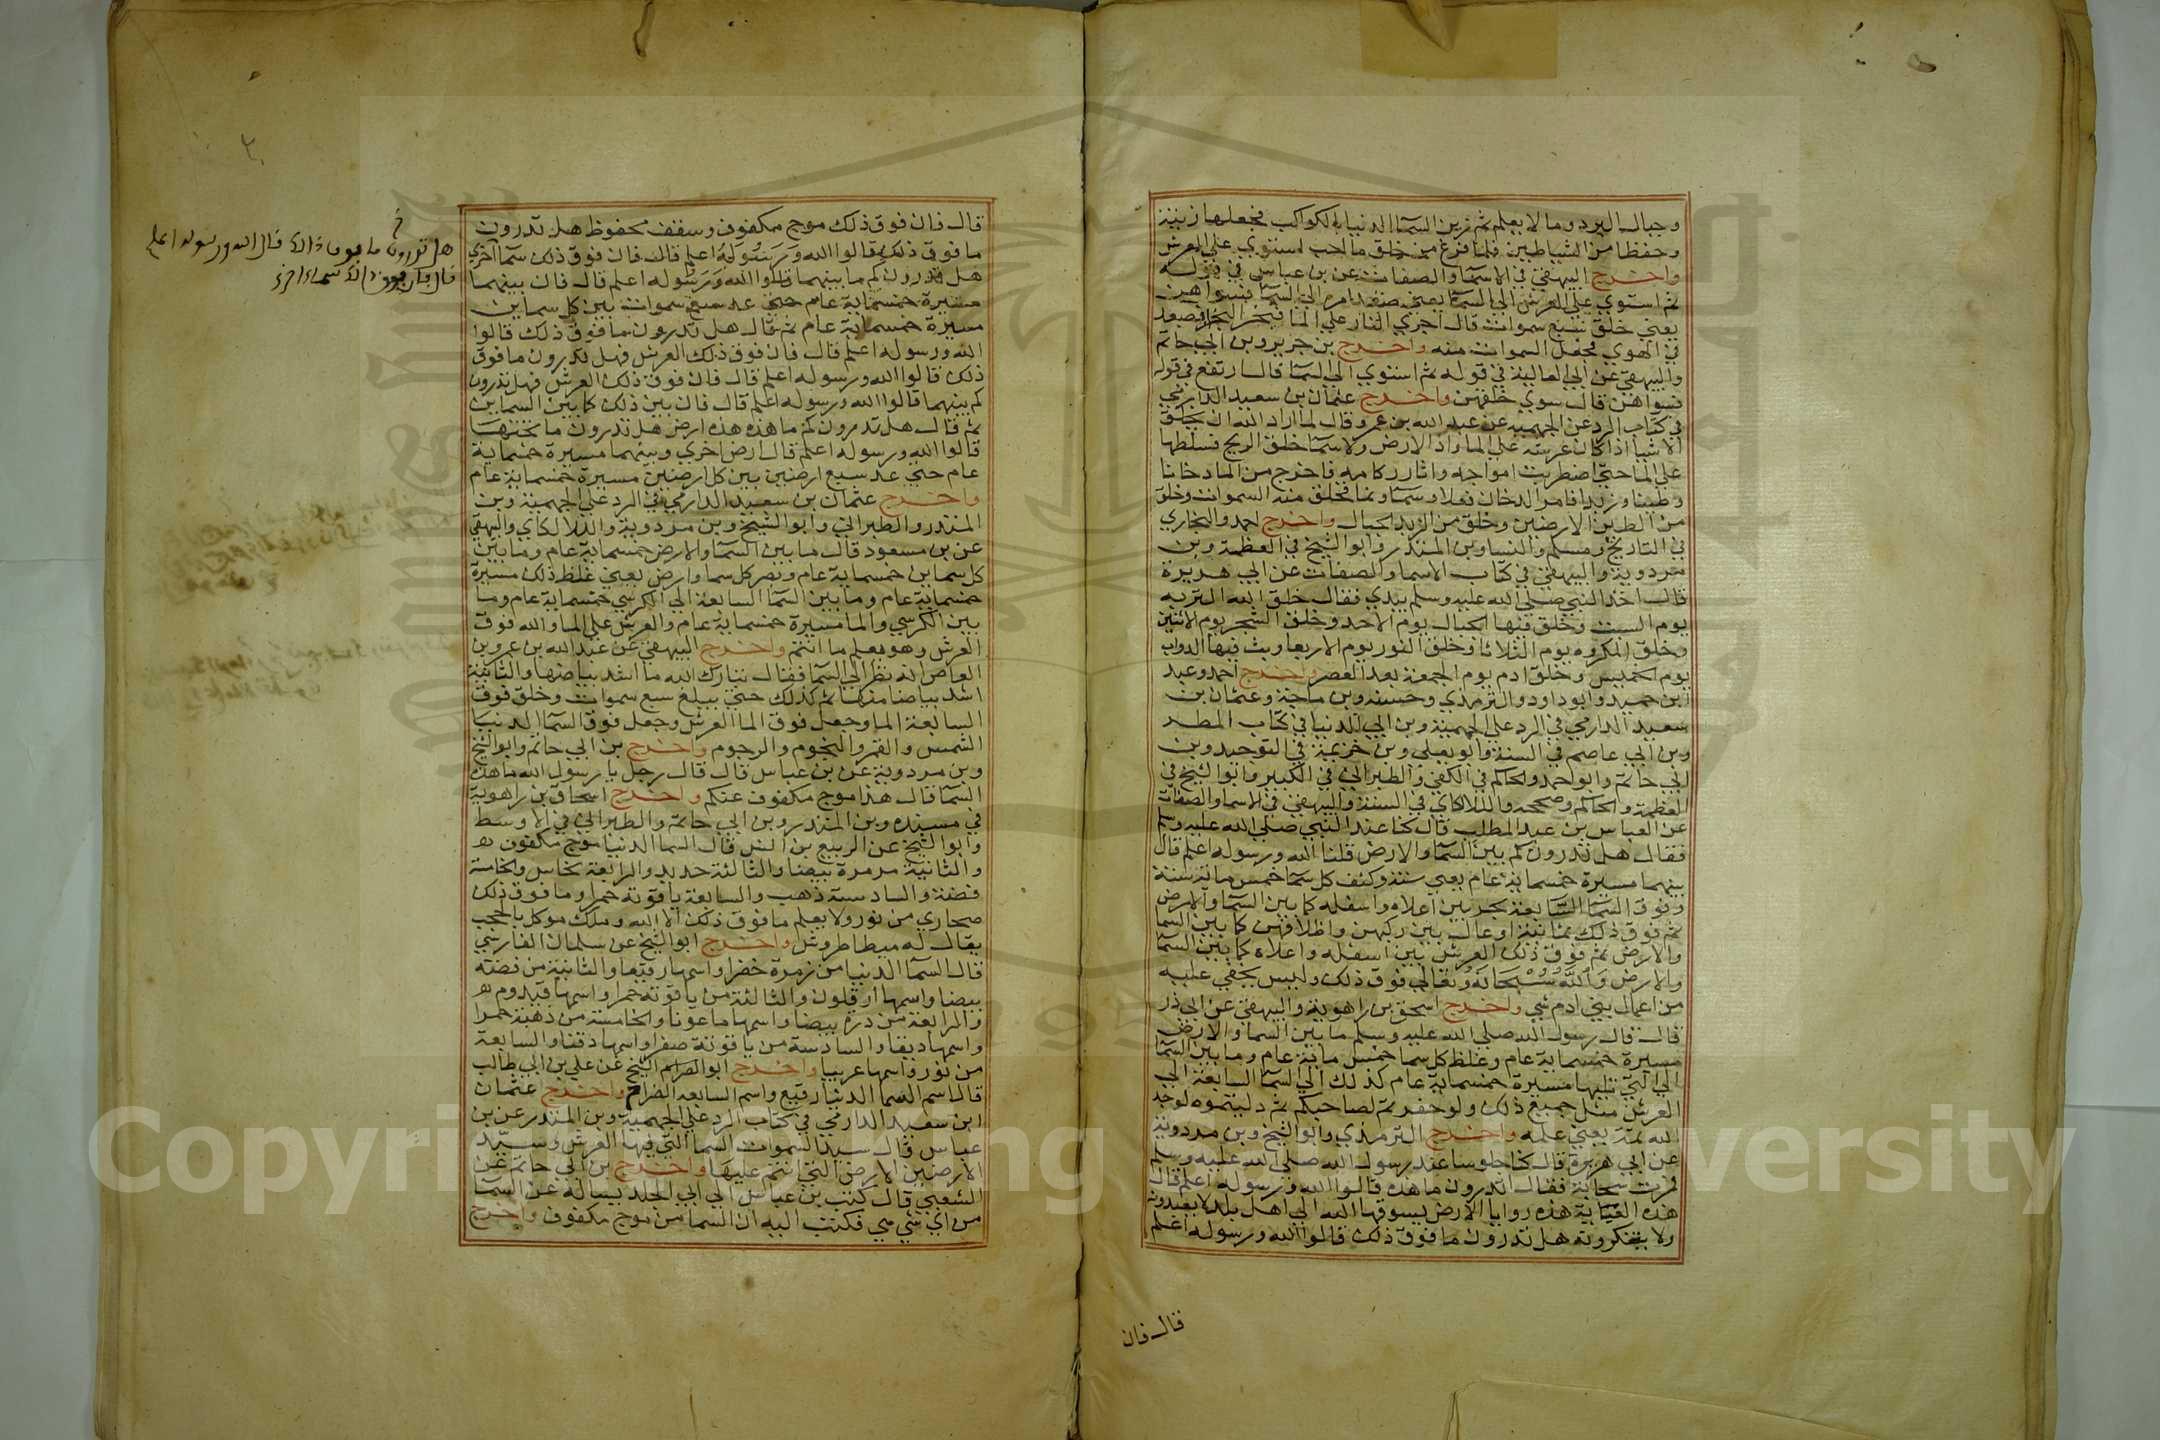 وجبال البرد وما لا يعلم ثم زين السما الدنيا بالكواكب فجعلها زينة
وحفظا من الشياطين فلما فرغ من خلق ما احب استوي علي العرش
واخرج البيهقي في الاسما والصفات عن بن عباس في قوله
ثم استوي علي العرش الي السما يعني صعد امره الي السما فسواهن
يعني خلق سبع سموات قال اجري النار علي الما فبخر البخار فصعد
في الهوي فجعل السموات منه واخرج بن جرير وبن ابي حاتم
والبيهقي عن ابي العالية في قوله ثم استوي الي السما قال ارتفع في قوله
فسواهن قال سوي خلقهن واخرج عثمان بن سعيد الدارمي
في كتاب الرد عن الجهمية عن عبد الله بن عمرو قال لما اراد الله ان يخلق
الاشيا اذ كان عرشه علي الما واذ لا ارض ولا سما خلق الريح فسلطها
علي الما حتي اضطربت امواجه واثار ركامه فاخرج من الما دخانا
وطينا وزبدا فامر الدخان فعلا وسما ونما فخلق منه السموات وخلق
من الطين الارضين وخلق من الزبد الجبال واخرج احمد والبخاري
في التاريخ ومسلم والنساوبن المنذر وابو الشيخ في العظمة وبن
مردوية والبيهقي في كتاب الاسما والصفات عن ابي هريرة
قال اخذ النبي صلي الله عليه وسلم بيدي فقال خلق الله التربه
يوم السبت وخلق فيها الجبال يوم الاحد وخلق الشجر يوم الاثنين
وخلق المكروه يوم الثلاثا وخلق النور يوم الاربعا وبث فيها الدواب
يوم الخميس وخلق ادم يوم الجمعة بعد العصر واخرج احمد وعبد
ابن حميد وابو داود والترمذي وحسنه وبن ماجة وعثمان بن
سعيد الدارمي في الرد علي الجهمية وبن ابي الدنيا في كتاب المطر
وبن ابي عاصم في السنة وابو يعلي وبن خزيمة في التوحيد وبن
ابي حاتم وابو احمد والحاكم في الكني والطبراني في الكبير وابو الشيخ في
العظمة والحاكم وصححه واللالكاي في السنة والبيهقي في الاسما والصفات
عن العباس بن عبد المطلب قال كنا عند النبي صلي الله عليه وسلم
فقال هل تدرون كم بين السما والارض قلنا الله ورسوله اعلم قال
بينهما مسيرة خمسماية عام يعني سنة وكثف كل سما خمس مائة سنة
وفوق السما السابعة بحر بين اعلاه واسفله كما بين السما والارض
ثم فوق ذلك ثمانية اوعال بين ركبهن واظلافهن كما بين السما
والارض ثم فوق ذلك العرش بين اسفله واعلاه كما بين السما
والارض والله سبحانه وتعالي فوق ذلك وليس يخفي عليه
من اعمال بني ادم شي واخرج اسحق بن راهوية والبيهقي عن ابي ذر
قال قال رسول الله صلي الله عليه وسلم ما بين السما والارض
مسيرة خمسماية عام وغلظ كل سما خمس ماية عام وما بين السما
الي التي تليها مسيرة خمسماية عام كذلك الي السما السابعة الي
العرش مثل جميع ذلك ولو حفرتم لصاحبكم ثم دليتموه لوجد
الله ثمة يعني علمه واخرج الترمذي وابو الشيخ وبن مردوية
عن ابي هريرة قال كنا جلوسا عند رسول الله صلي الله عليه وسلم
فمرت سحابة فقال اتدرون ما هذه قالوا الله ورسوله اعلم قال
هذه الغيابة هذه روايا الارض يسوقها الله الي اهل بلد لا يعبدونه
ولا يشكرونه هل تدرون ما فوق ذلك قالوا الله ورسوله اعلم
قال فان
قال فان فوق ذلك موج مكفوف وسقف محفوظ هل تدرون
ما فوق ذلك قالوا الله ورسوله اعلم قال فان فوق ذلك سما آخري
هل تدرون كم ما بينهما قالوا الله ورسوله اعلم قال فان بينهما
مسيرة خمسماية عام حتي عد سبع سموات بين كل سماين
مسيرة خمسماية عام ثم قال هل تدرون ما فوق ذلك قالوا
الله ورسوله اعلم قال فان فوق ذلك العرش فهل تدرون ما فوق
ذلك قالوا الله ورسوله اعلم قال فان فوق ذلك العرش فهل تدرون
كم بينهما قالوا الله ورسوله اعلم قال فان بين ذلك كما بين السماين
ثم قال هل تدرون كم ما هذه هذه ارض هل تدرون ما تحتها
قالوا الله ورسوله اعلم قال ارض اخري وبينهما مسيرة خمسماية
عام حتي عد سبع ارضين بين كل ارضين مسيرة خمسماية عام
واخرج عثمان بن سعيد الدارمي في الرد علي الجهمية وبن
المنذر والطبراني وابو الشيخ وبن مردوية واللالكاي والبيهقي
عن بن مسعود قال ما بين السما والارض خمسماية عام وما بين
كل سماين خمسماية عام وبصر كل سما وارض يعني غلظ ذلك مسيرة
خمسماية عام وما بين السما السابعة الي الكرسي خمسماية عام وما
بين الكرسي والما مسيرة خمسماية عام والعرش علي الما والله فوق
العرش وهو يعلم ما انتم واخرج البيهقي عن عبد الله بن عمرو بن
العاص انه نظر الي السما فقال تبارك الله ما اشد بياضها والثانية
اشد بياضا منها ثم كذلك حتي يبلغ سبع سموات وخلق فوق
السابعة الما وجعل فوق الما العرش وجعل فوق السما الدنيا
الشمس والقمر والنجوم والرجوم واخرج بن ابي حاتم وابو الشيخ
وبن مردوية عن بن عباس قال قال رجل يا رسول الله ما هذه
السما قال هذا موج مكفوف عنكم واخرج اسحاق بن راهوية
في مسنده وبن المنذر وبن ابي حاتم والطبراني في الاوسط
وابو الشيخ عن الربيع بن انس قال السما الدنيا موج مكفوف
والثانية مرمرة بيضا والثالثة حديد والرابعة نحاس والخامسة
فضة والسادسة ذهب والسابعة ياقوتة حمرا وما فوق ذلك
صحاري من نور ولا يعلم ما فوق ذلك الا الله وملك موكل بالحجب
يقال له ميطاطروش واخرج ابو الشيخ عن سلمان الفارسي
قال السما الدنيا من زمردة خضرا واسمها رقيعا والثانية من فضة
بيضا واسمها ارقلون والثالثة من ياقوتة حمرا واسمها قيدوم
والرابعة من درة بيضا واسمها ماعونا والخامسة من ذهبة حمرا
واسمها ديقا والسادسة من ياقوتة صفرا واسمها دقنا والسابعة
من نور واسمها عريبا واخرج ابو الشيخ عن علي بن ابي طالب
قال اسم السما الدنيا رقيع واسم السابعه الضراح واخرج عثمان
ابن سعيد الدارمي في كتاب الرد علي الجهمية وبن المنذر عن بن
عباس قال سيد السموات السما التي فيها العرش وسيد
الارضين الارض التي انتم عليها واخرج بن ابي حاتم عن
الشعبي قال كتب بن عباس الي ابي الجلد يساله عن السما
من اي شي هي فكتب اليه ان السما من موج مكفوف واخرج
هل تدرون ما فوق ذلك قال الله ورسوله اعلم
قال فان فوق ذلك سماء اخرى
Copyri ng versity